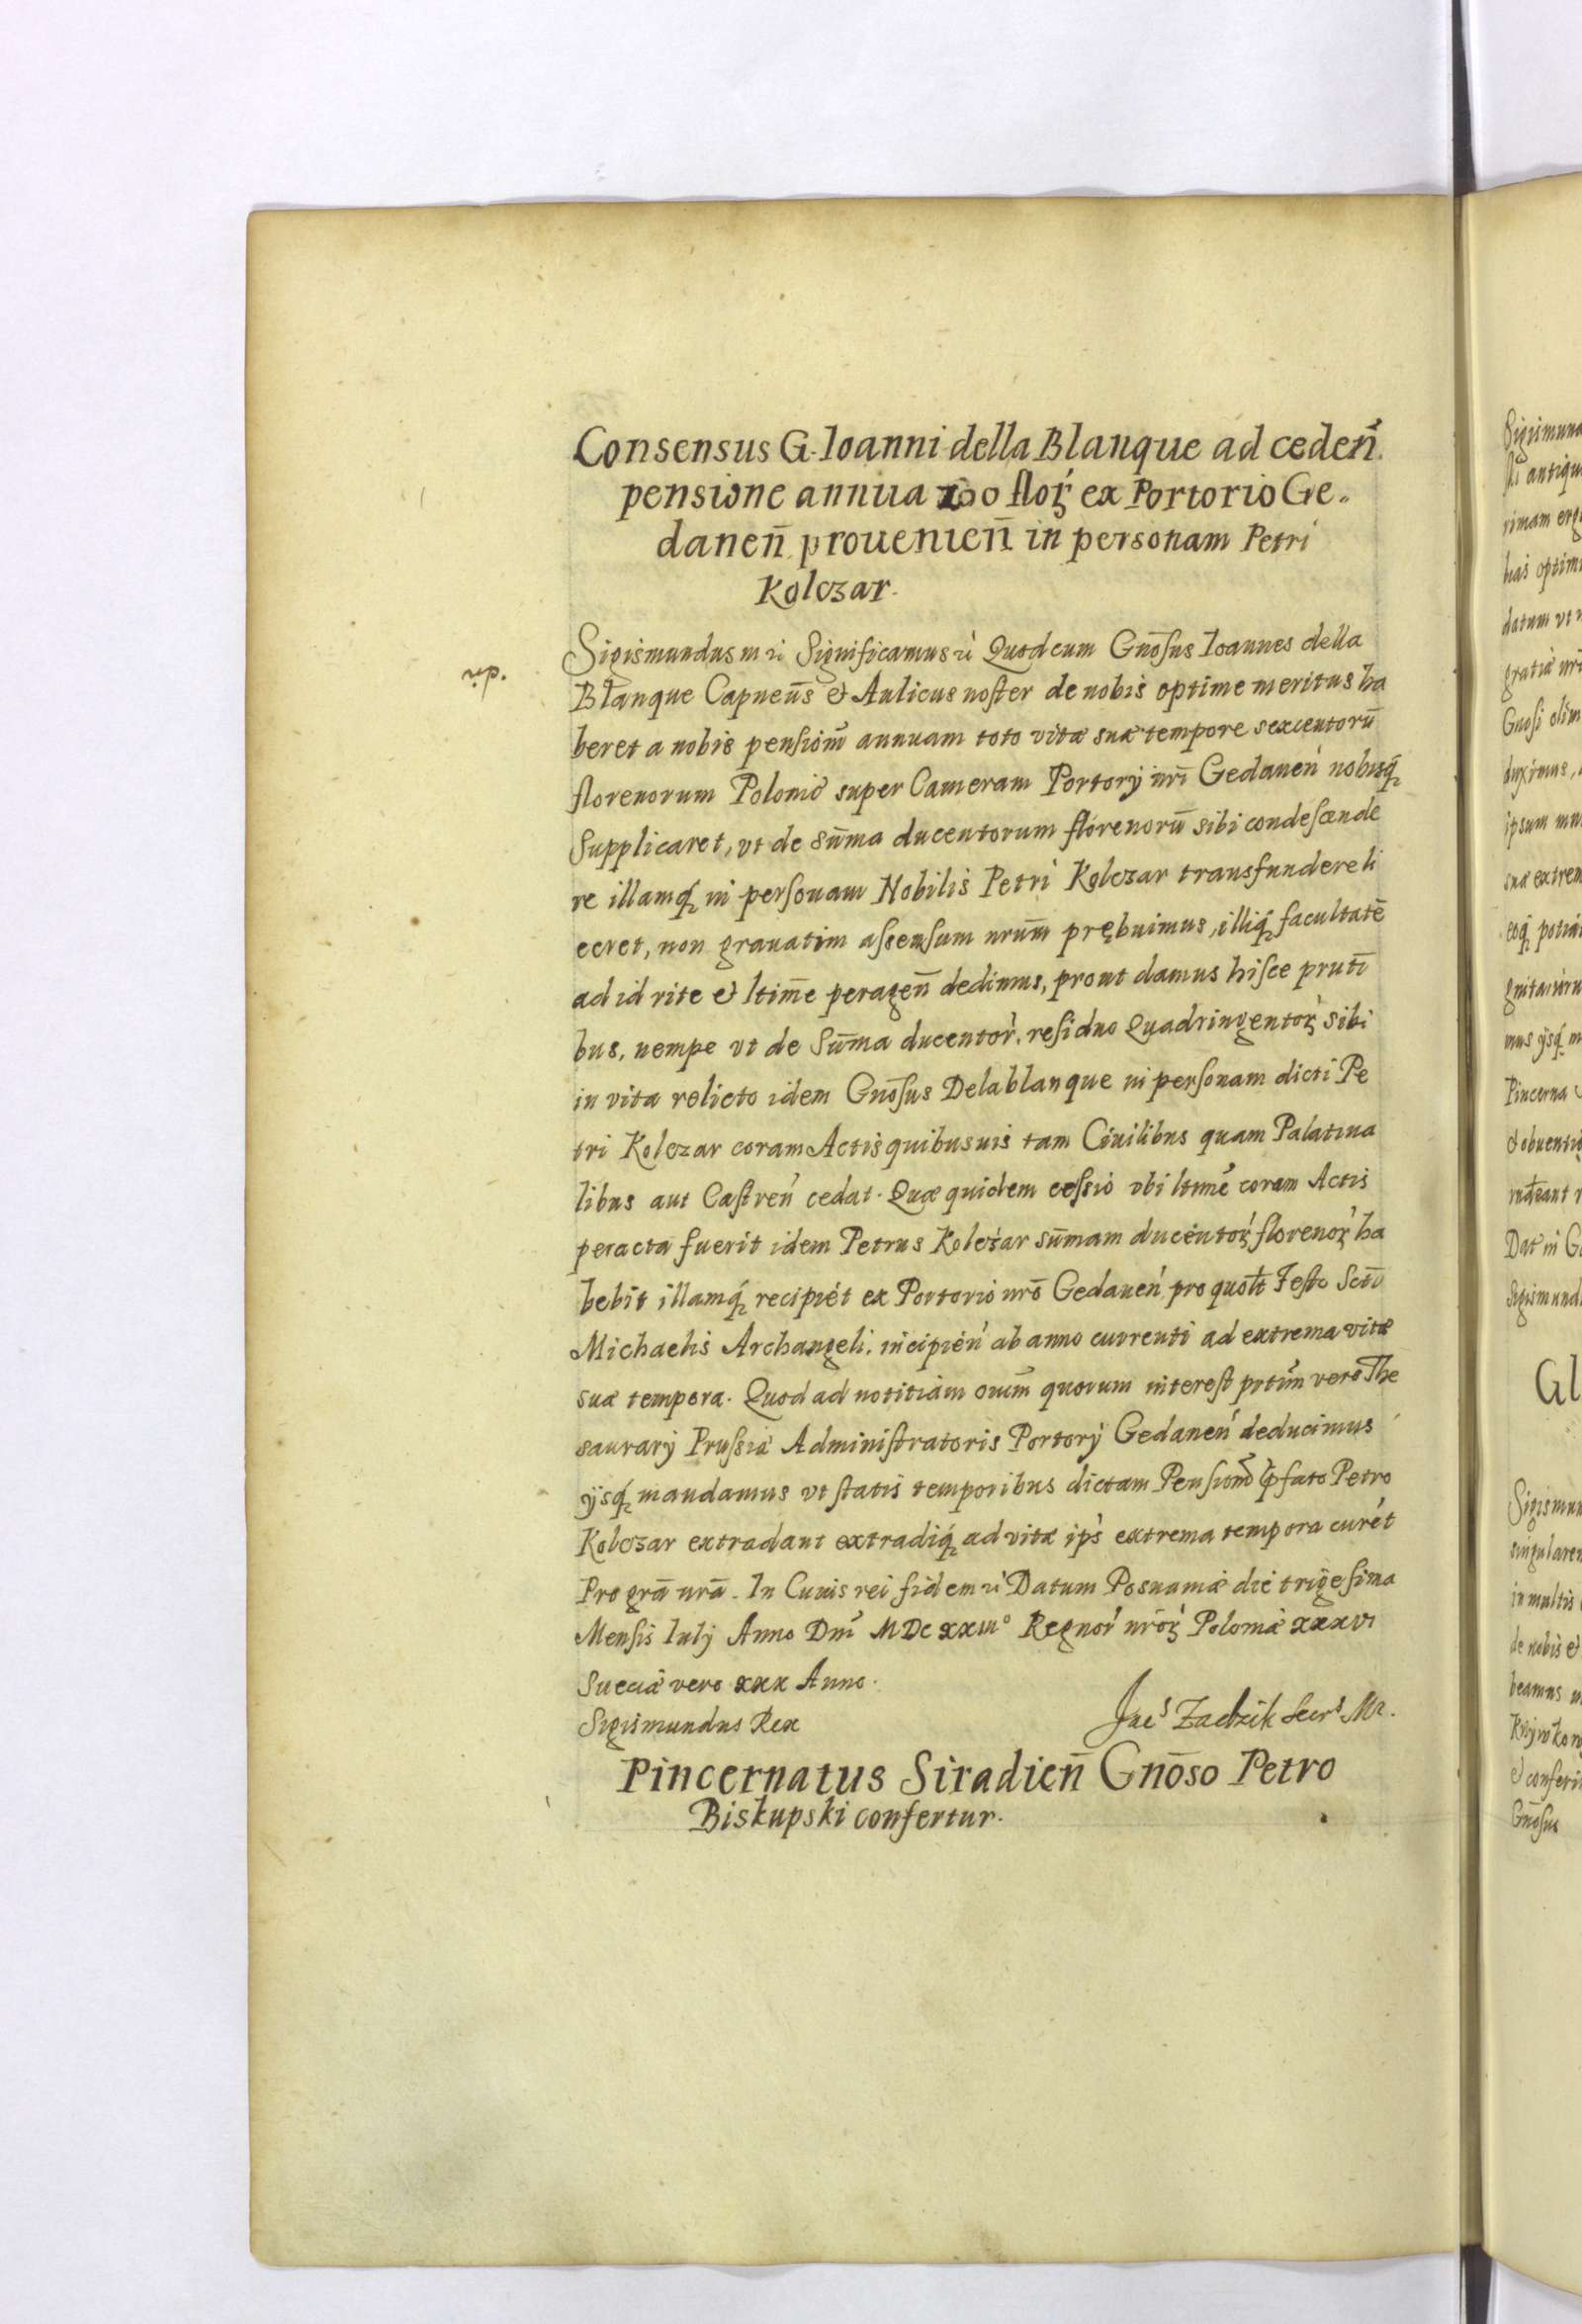 Consensus G. Ioanni della Blanque ad ceden̄.
pensione annua 200 flor. ex Portorio Ge-
danen̄ prouenien̄ in personam Petri
Kolczar.
Sigismundus m Significamus Quod cum Gnōsus Ioannes della
Blanque Capneūs et Aulicus noster de nobis optime meritus ha
beret a nobis pensiōm annuam toto vitæ suæ tempore sexcentorū
florenorum Polonic̄ super Cameram Portorÿ nrī Gedanen̄ nobisq́
Supplicaret, vt de sūma ducentorum florenorū sibi condescende
re illamq́ in personam Nobilis Petri Kolczar transfundere li
ceret, non grauatim assensum nrūm prębuimus, illiq́ facultatē
ad id rite et ltim̄e peragen̄ dedimus, prout damus hisce pn̄ti
bus, nempe vt de Sūma ducentor̀. residuo Quadringentor̀ sibi
in vita relicto idem Gnōsus Delablanque in personam dicti Pe
tri Kolczar coram Actis quibusuis tam Ciuilibus quam Palatina
libus aut Castren̄ cedat. Quæ quidem cessio vbi ltimē coram Actis
peracta fuerit idem Petrus Kolczar sūmam ducentor̀ florenor̀ ha
bebit illamq́ recipiet ex Portorio nrō Gedanen̄ pro quōlt Festo Sctī
Michaelis Archangeli, incipien̄ ab anno currenti ad extrema vitæ
suæ tempora. Quod ad notitiam om̄m quorum interest prt̄im vero The
saurarÿ Prussiæ Administratoris Portorÿ Gedanen̄ deducimus
ÿsq́ mandamus vt statis temporibus dictam Pensiōm pfato Petro
Kolczar extradant extradiq́ ad vitæ ip̄s extrema tempora curēt
Pro grā nrā. In Cuius rei fidem Datum Posnaniæ die trigesima
Mensis Iulÿ Anno Dnī MDCxxiii° Regnor̀ nrōr̀ Poloniæ xxxvi
Sueciæ vero xxx Anno.
Sigismundus Rex
Jacs Zadzik Secrs Mr.
Pincernatus Siradien̄ Gnōso Petro
Biskupski confertur.